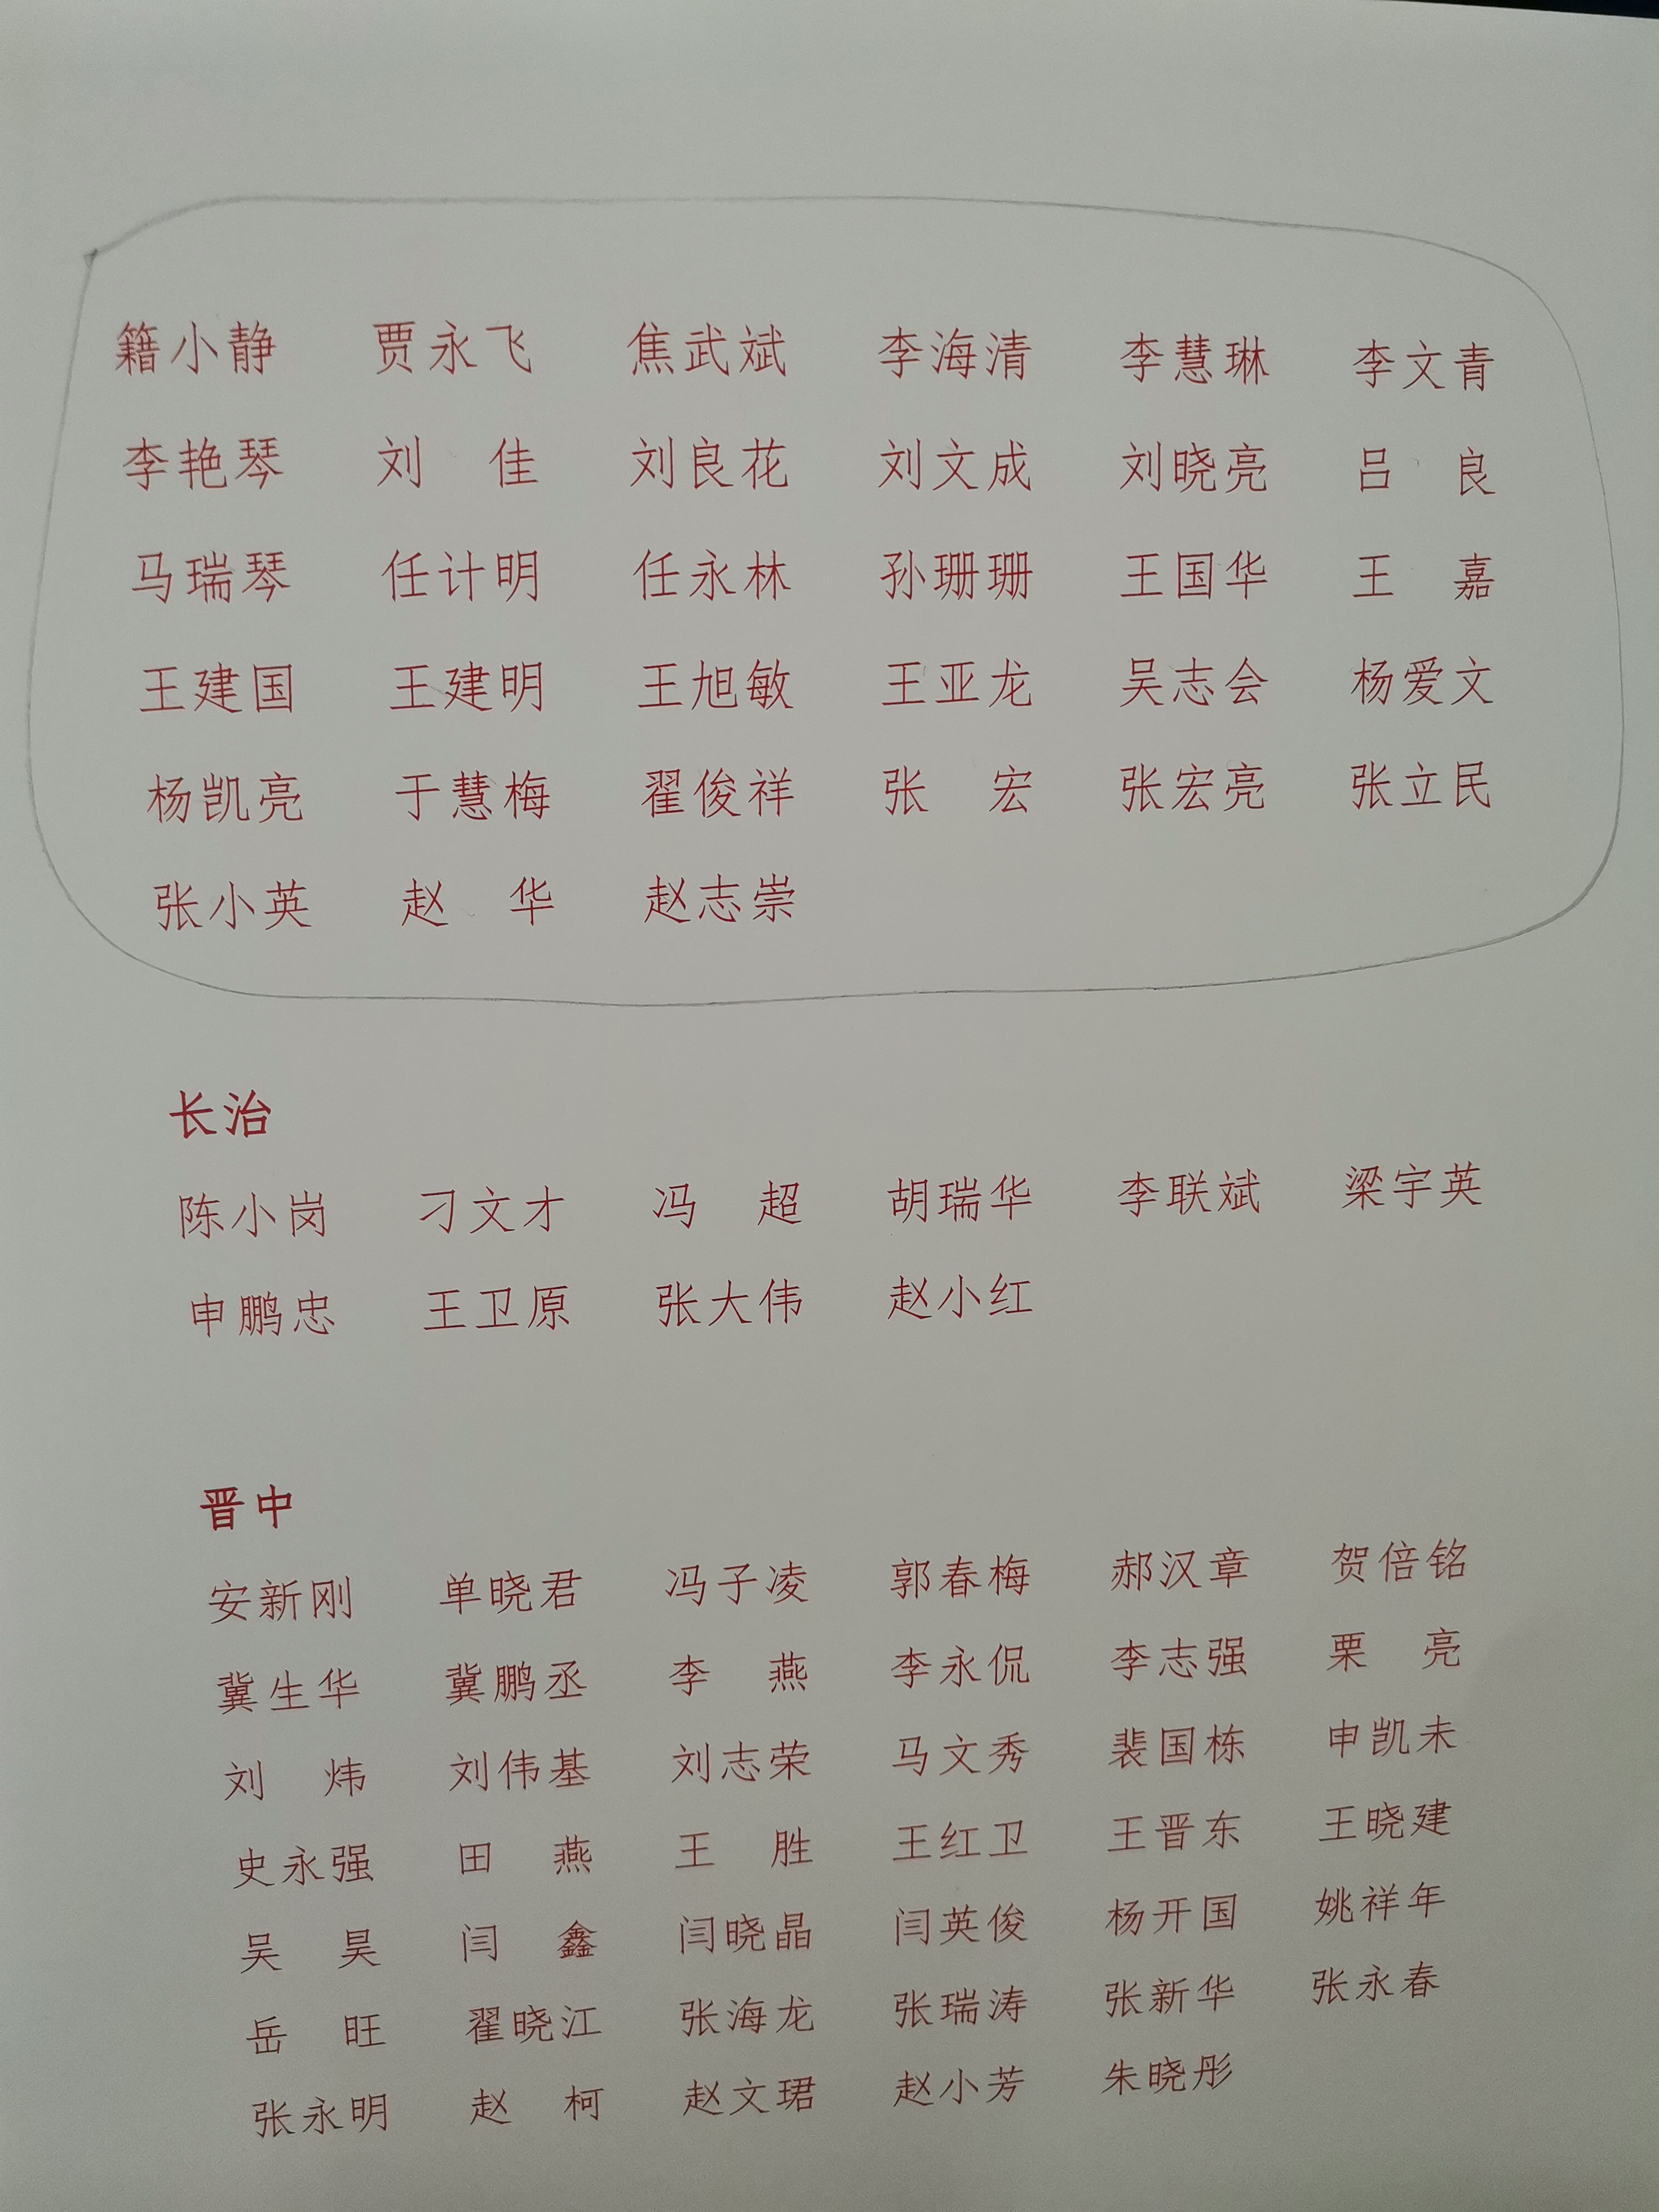 籍小静 贾永飞 焦武斌 李海清 李慧琳 李文青
李艳琴 刘 佳 刘良花 刘文成 刘晓亮 吕 良
马瑞琴 任计明 任永林 孙珊珊 王国华 王 嘉
王建国 王建明 王旭敏 王亚龙 吴志会 杨爱文
杨凯亮 于慧梅 翟俊祥 张 宏 张宏亮 张立民
张小英 赵 华 赵志崇
长治
陈小岗 刁文才 冯 超 胡瑞华 李联斌 梁宇英
申鹏忠 王卫原 张大伟 赵小红
晋中
安新刚 单晓君 冯子凌 郭春梅 郝汉章 贺倍铭
冀生华 冀鹏丞 李 燕 李永侃 李志强 栗 亮
刘 炜 刘伟基 刘志荣 马文秀 裴国栋 申凯未
史永强 田 燕 王 胜 王红卫 王晋东 王晓建
吴 昊 闫 鑫 闫晓晶 闫英俊 杨开国 姚祥年
岳 旺 翟晓江 张海龙 张瑞涛 张新华 张永春
张永明 赵 柯 赵文珺 赵小芳 朱晓彤